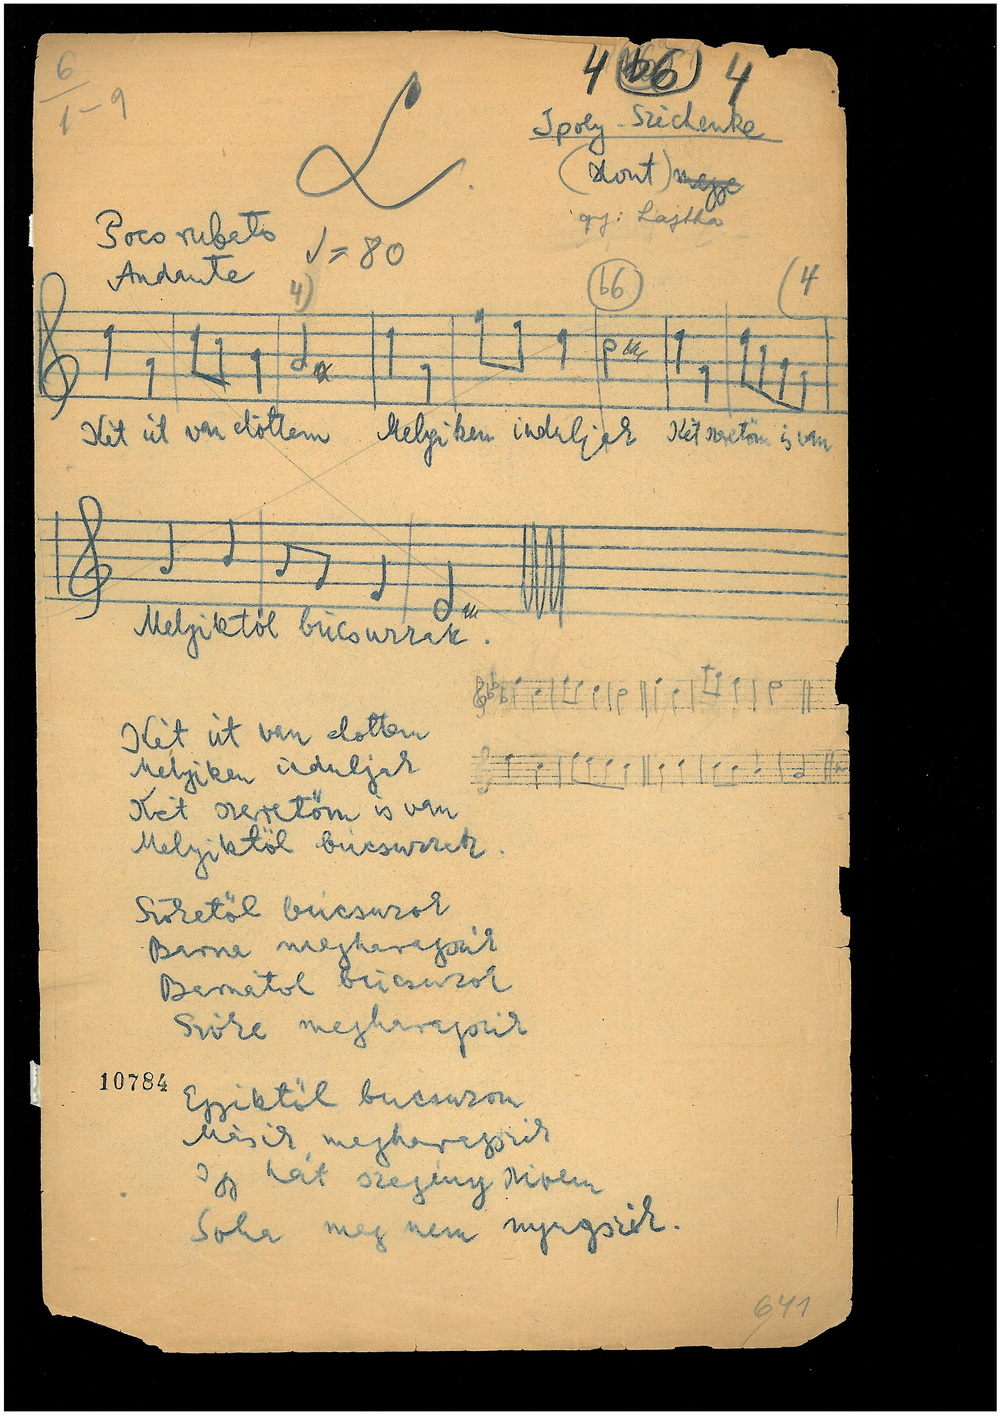 6
1-9
4 (b6) 4
L.
Ipoly-Szécsénke
(Hont) megye
gy: Lajtha
Poco rubato
Andante
♩= 80
4) b6 (4
Két út van előttem Melyiken induljak Két szeretőm is van
Melyiktől búcsuzzak.
Két út van elottem
Melyiken induljak
Két szeretőm is van
Melyiktől búcsuzzak.
Szőketől búcsuzok
Barna megharagszik
Barnátol búcsuzok
Szőke megharagszik
10784
Egyiktől bucsuzom
Másik megharagszik
Igy hát szegény szivem
Soha meg nem nyugszik.
641